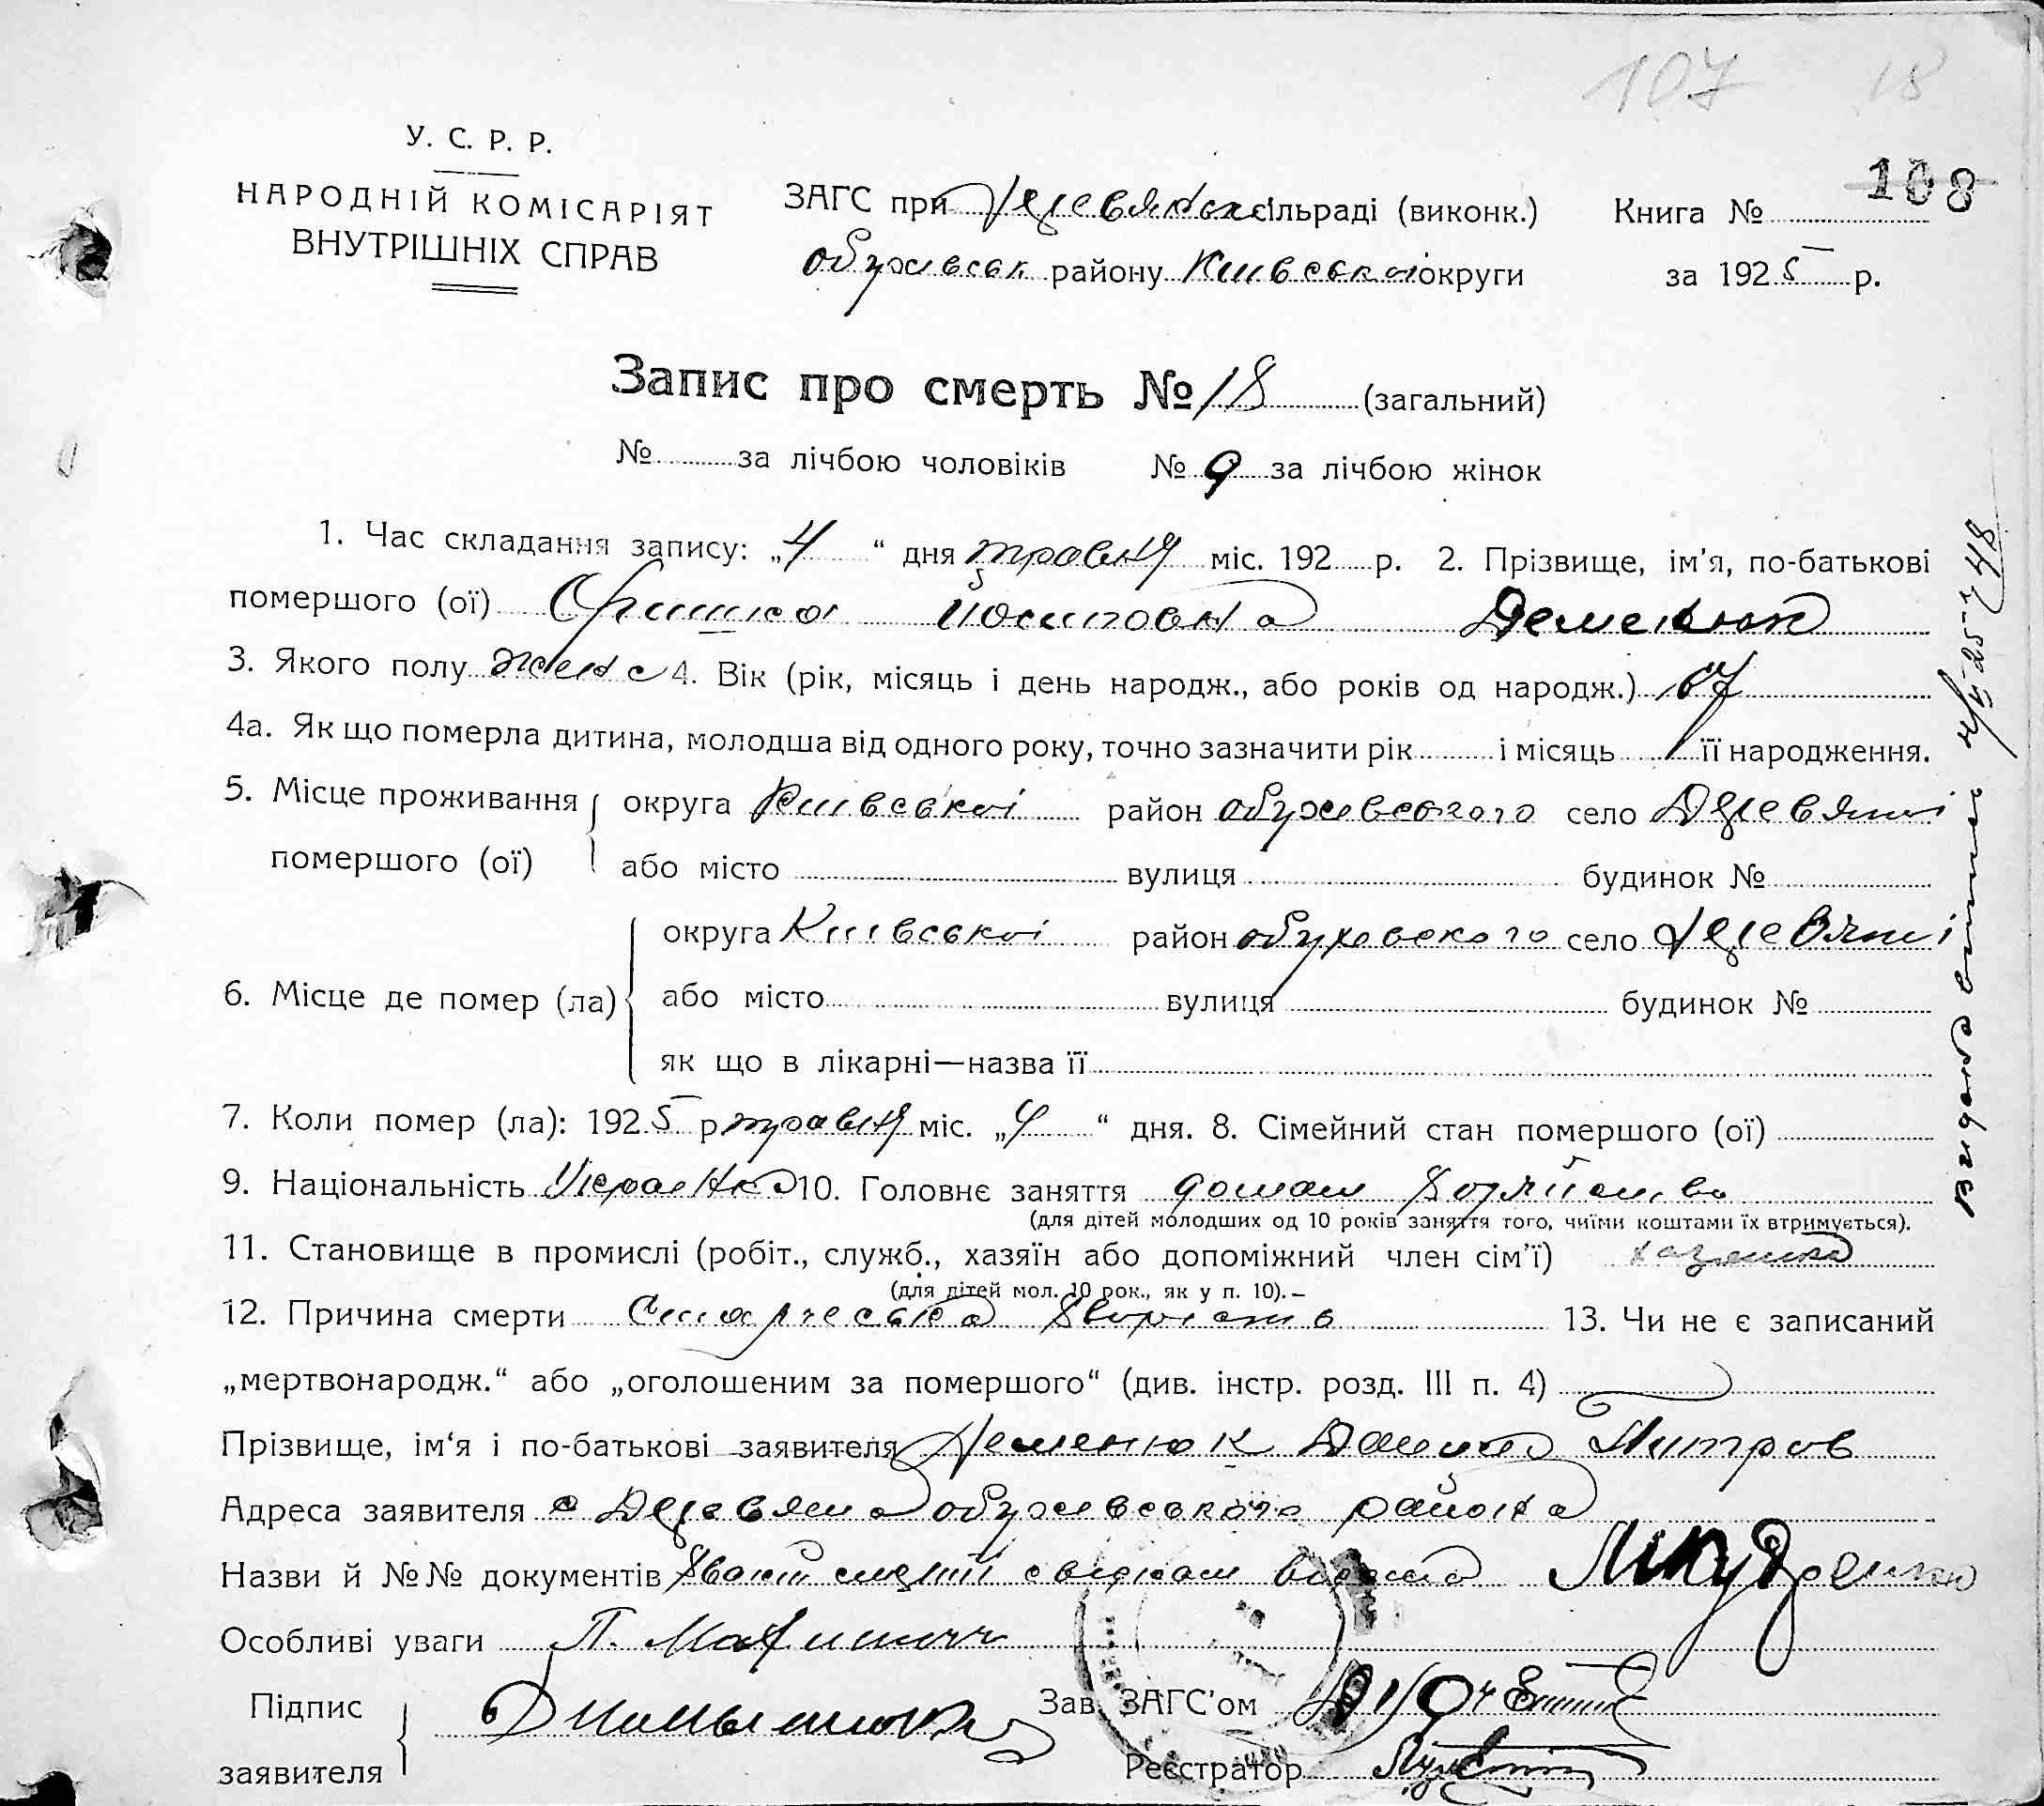 107 18
У. С. Р. Р.
НАРОДНІЙ КОМІСАРІЯТ
ВНУТРІШНІХ СПРАВ
ЗАГС при сільраді (виконк.)
обухівськ району Київської округи
Книга № 108
за 1925 р.
Запис про смерть № 18 (загальний)
№ за лічбою чоловіків № 9 за лічбою жінок
1. Час складання запису: „4“ дня травня міс. 192 р. 2. Прізвище, ім'я, по-батькові
помершого (ої) Оришка Йосиповна Деменюк
3. Якого полу жіноч 4. Вік (рік, місяць і день народж., або років од народж.) 67
4а. Як що померла дитина, молодша від одного року, точно зазначити рік і місяць її народження.
5. Місце проживання помершого (ої) округа Київської район обухівського село Деревяні
або місто вулиця будинок №
6. Місце де помер (ла) округа Київської район обуховского село Деревяні
або місто вулиця будинок №
як що в лікарні—назва її
7. Коли помер (ла): 1925 р травня міс. „4“ дня. 8. Сімейний стан помершого (ої)
9. Національність Украінка 10. Головнє заняття домаш хозяйство
(для дітей молодших од 10 років заняття того, чиїми коштами їх втримується).
11. Становище в промислі (робіт., служб., хазяїн або допоміжний член сім'ї) хазяика
(для дітей мол. 10 рок., як у п. 10).—
12. Причина смерти Старческа хворість 13. Чи не є записаний
„мертвонародж.“ або „оголошеним за помершого“ (див. інстр. розд. III п. 4)
Прізвище, ім'я і по-батькові заявителя Деменюк Данило Питров
Адреса заявителя с Деревяна обухівського района
Назви й №№ документів
Особливі уваги П.
Підпис заявителя
Зав. ЗАГС'ом
Реєстратор
Видано 4/V-25